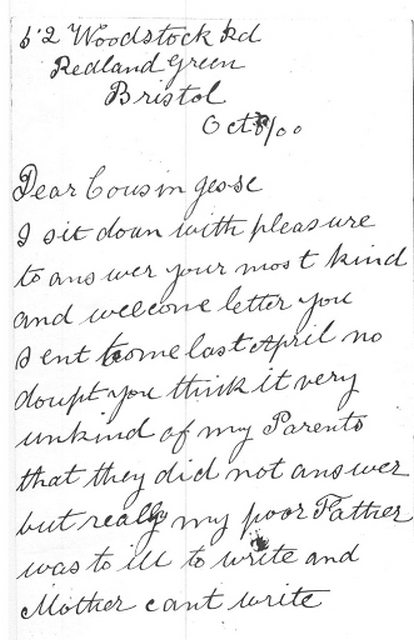 52 Woodstock Rd
Redland Green
Bristol
Oct 8/00
Dear Cousin Jesse
I sit down with pleasure
to answer your most kind
and wellcome letter you
Sent home last April no
doupt you think it very
unkind of my Parents
that they did not answer
but really my poor Father
was to ill to write and
Mother cant write